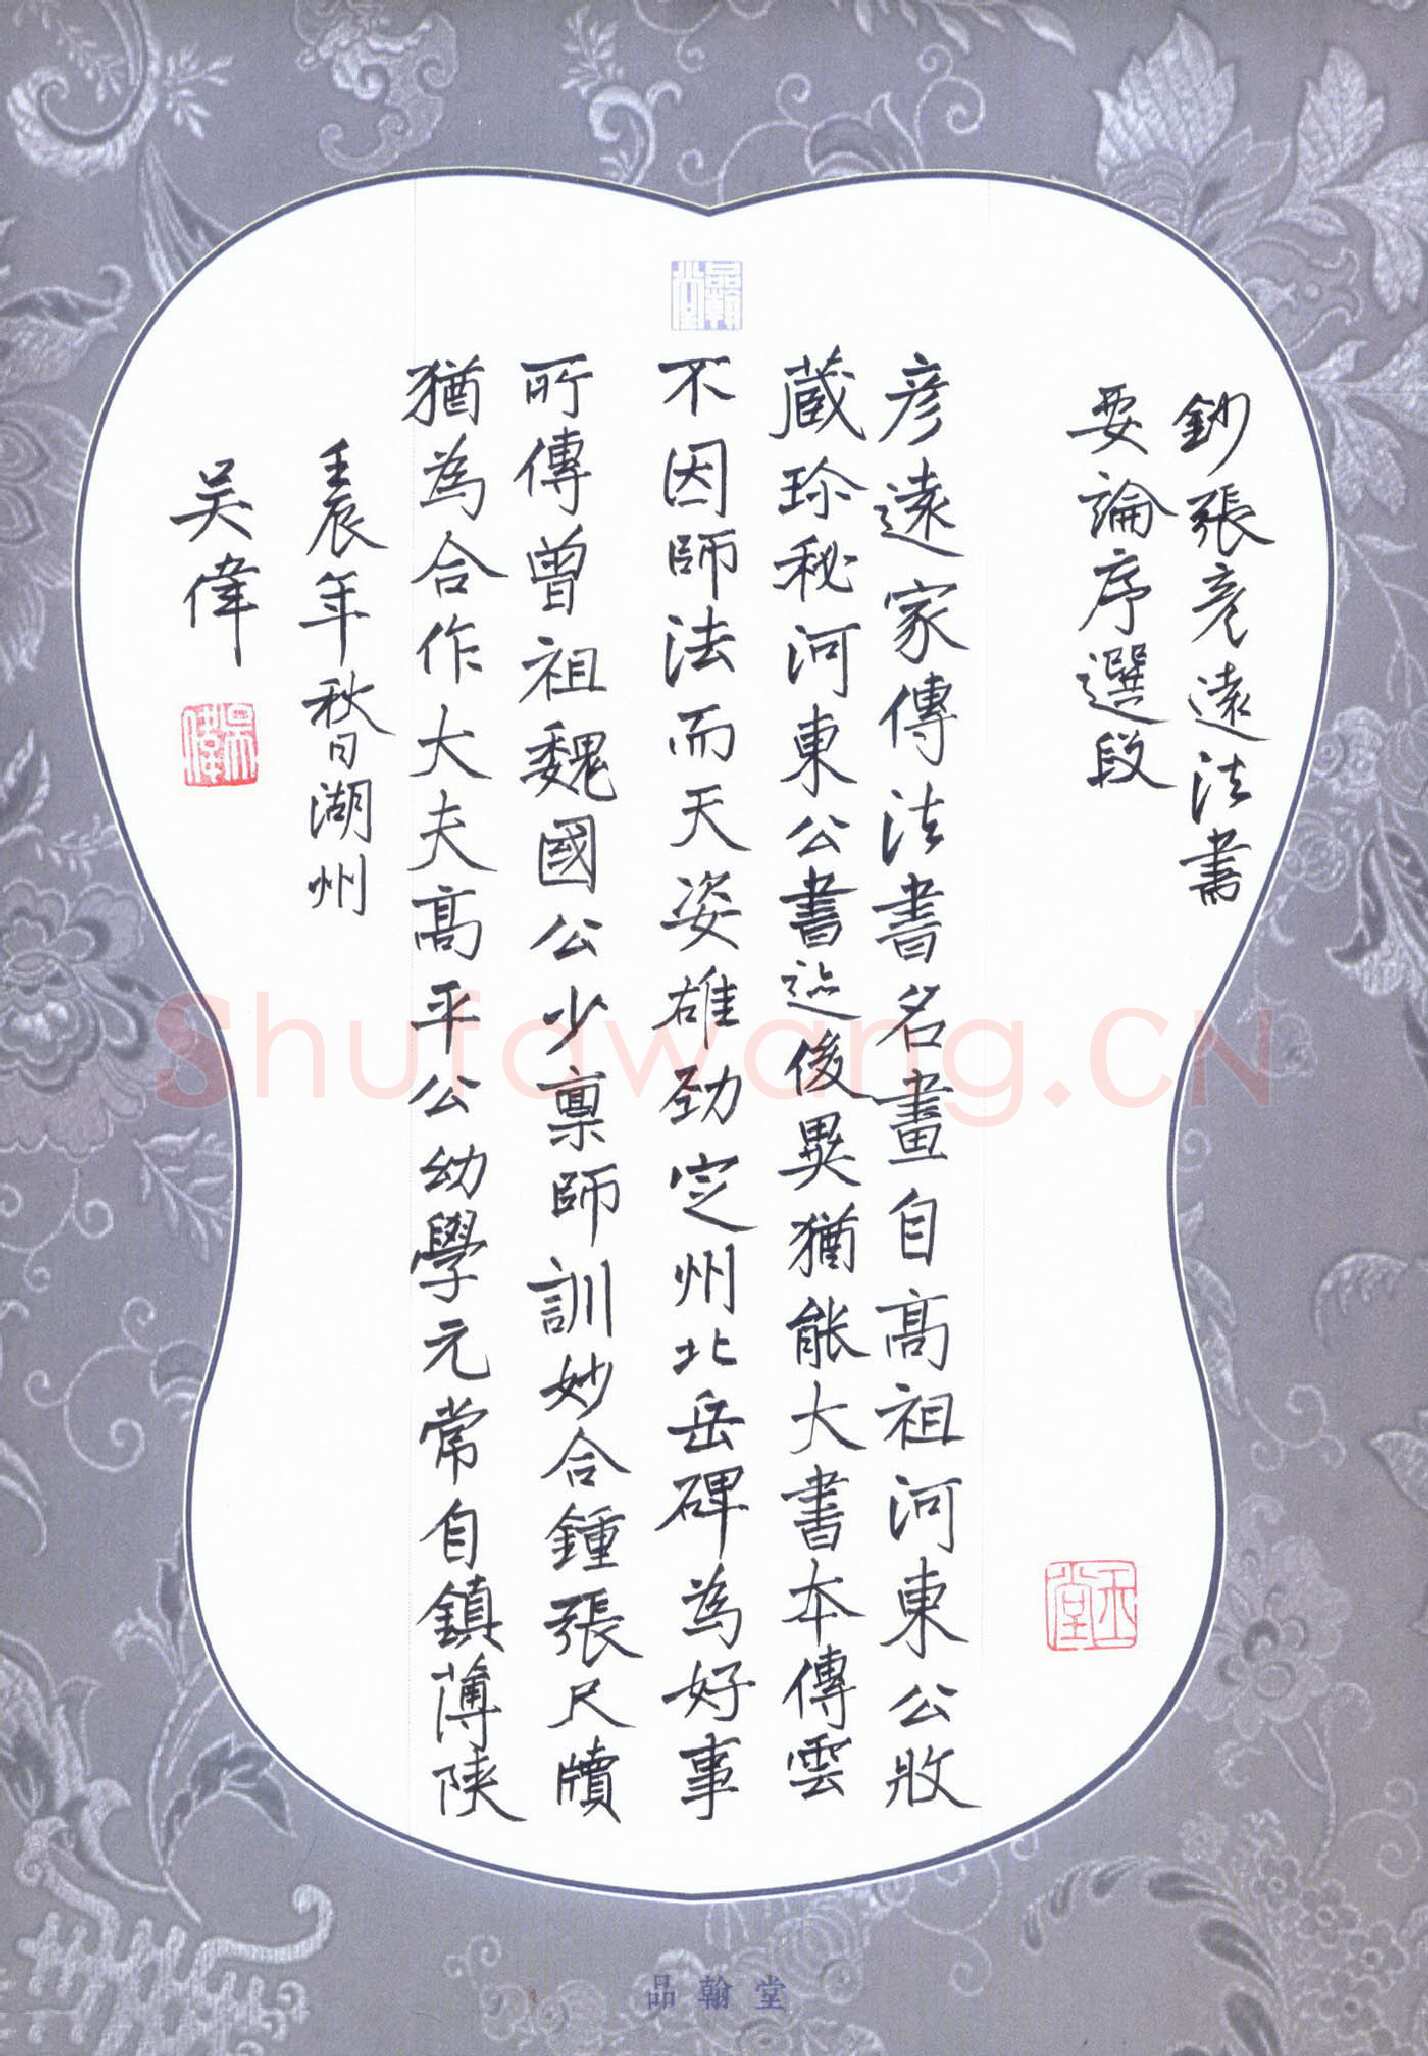 鈔張彦遠法書
要論序選段
彦遠家傳法書名畫自高祖河東公收
蔵珍秘河東公書迹後異猶能大書本傳雲
不因師法而天姿雄勁定州北岳碑為好事
所傳曾祖魏國公少稟師訓妙合鍾張尺牘
猶為合作大夫高平公幼學元常自鎮薄陝
壬辰年秋日湖州
吴偉
品翰堂
吴偉
玉堂
品翰堂
Shufawang.CN